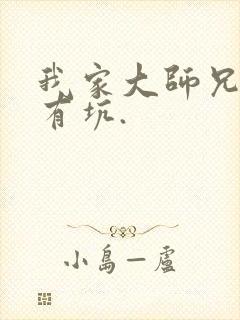 我家大師兄
有坑.
小島一盧